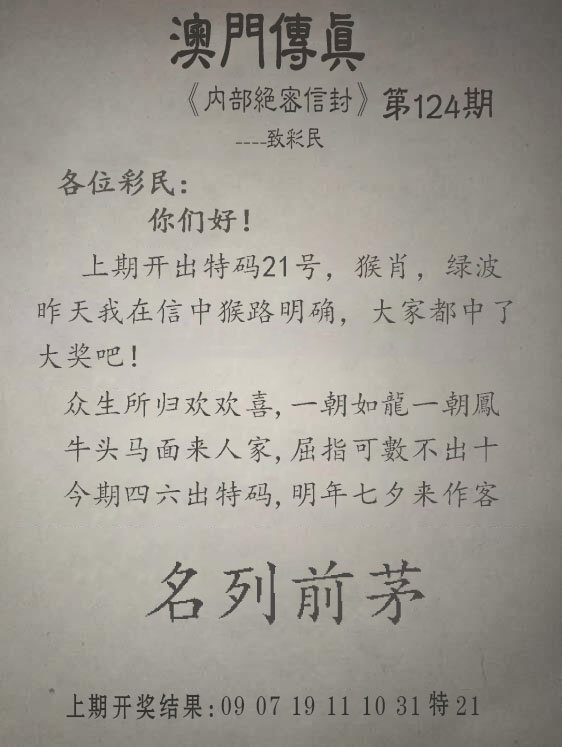 澳門傳真
《内部絕密信封》第124期
----致彩民
各位彩民：
你们好！
上期开出特码21号，猴肖，绿波
昨天我在信中猴路明确，大家都中了
大奖吧！
众生所归欢欢喜,一朝如龍一朝鳳
牛头马面来人家,屈指可數不出十
今期四六出特码,明年七夕来作客
名列前茅
上期开奖结果:09 07 19 11 10 31 特21